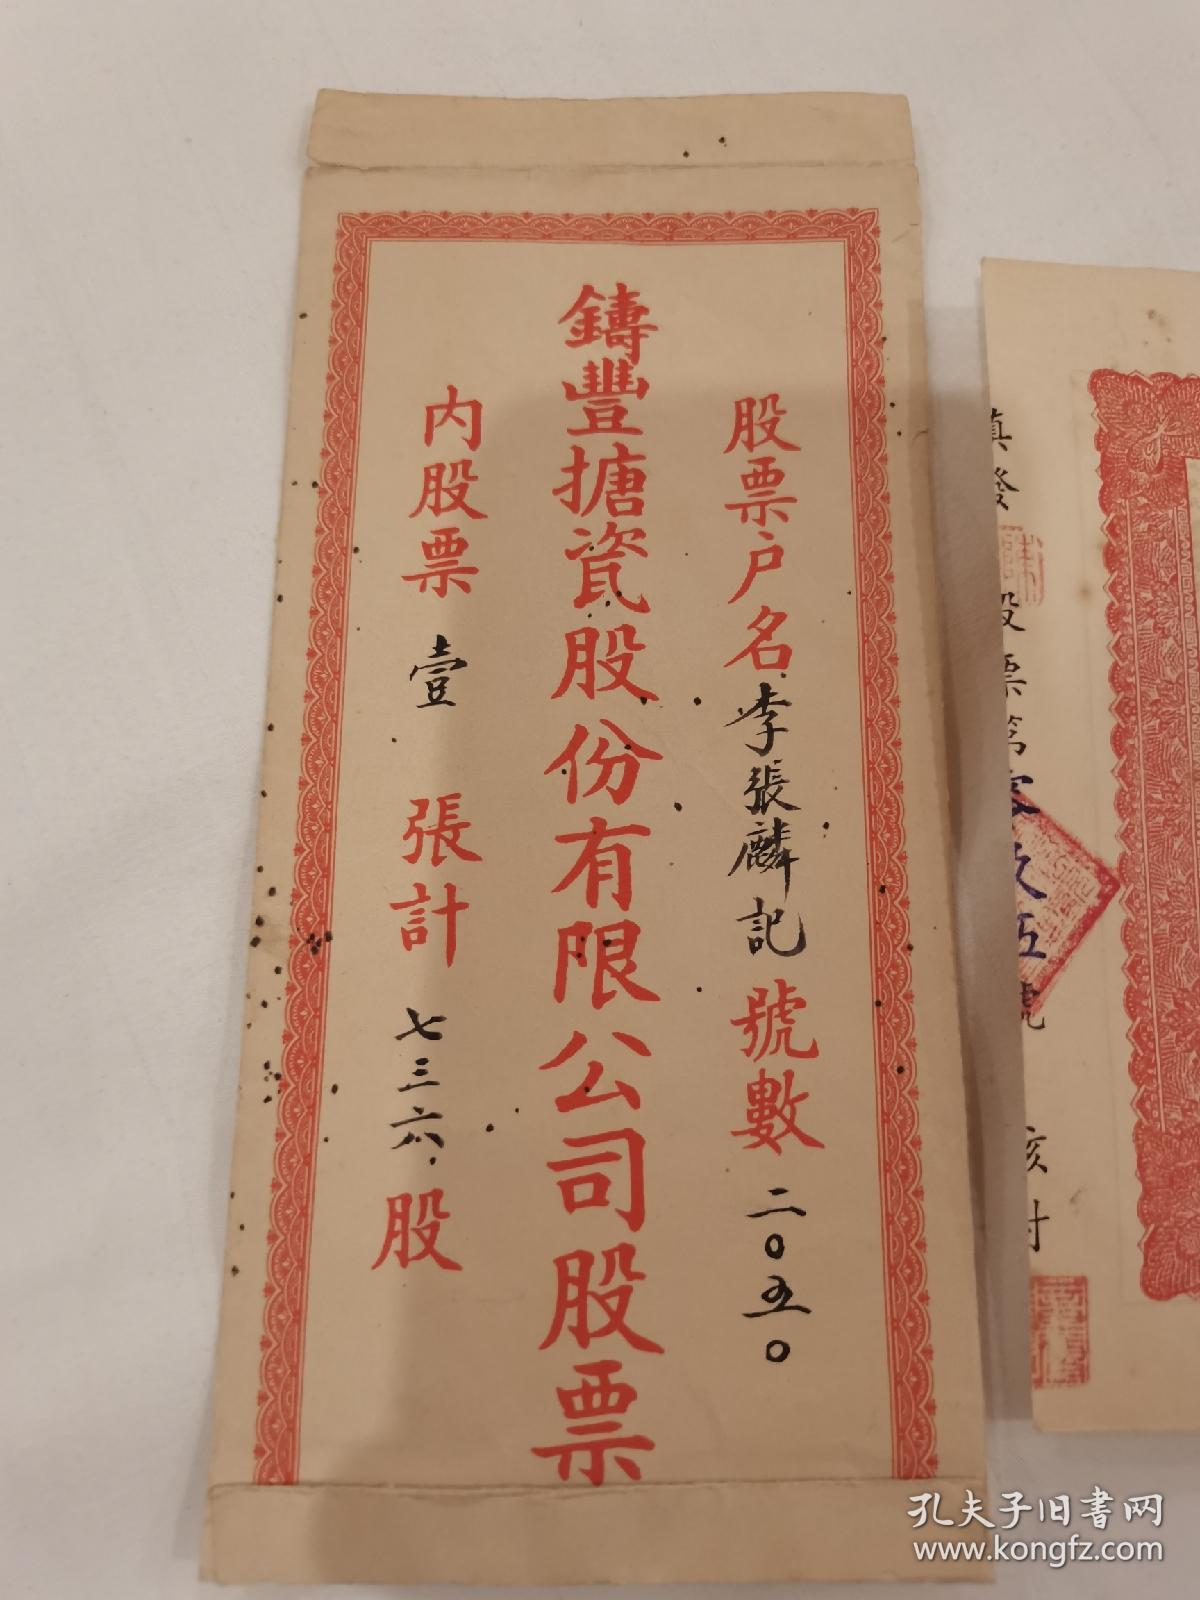 股票户名李張麟記號數二〇五〇
鑄豐搪瓷股份有限公司股票
内股票壹張計七三六股
填發股票第
伍號
核對
孔夫子旧书网
www.kongfz.com